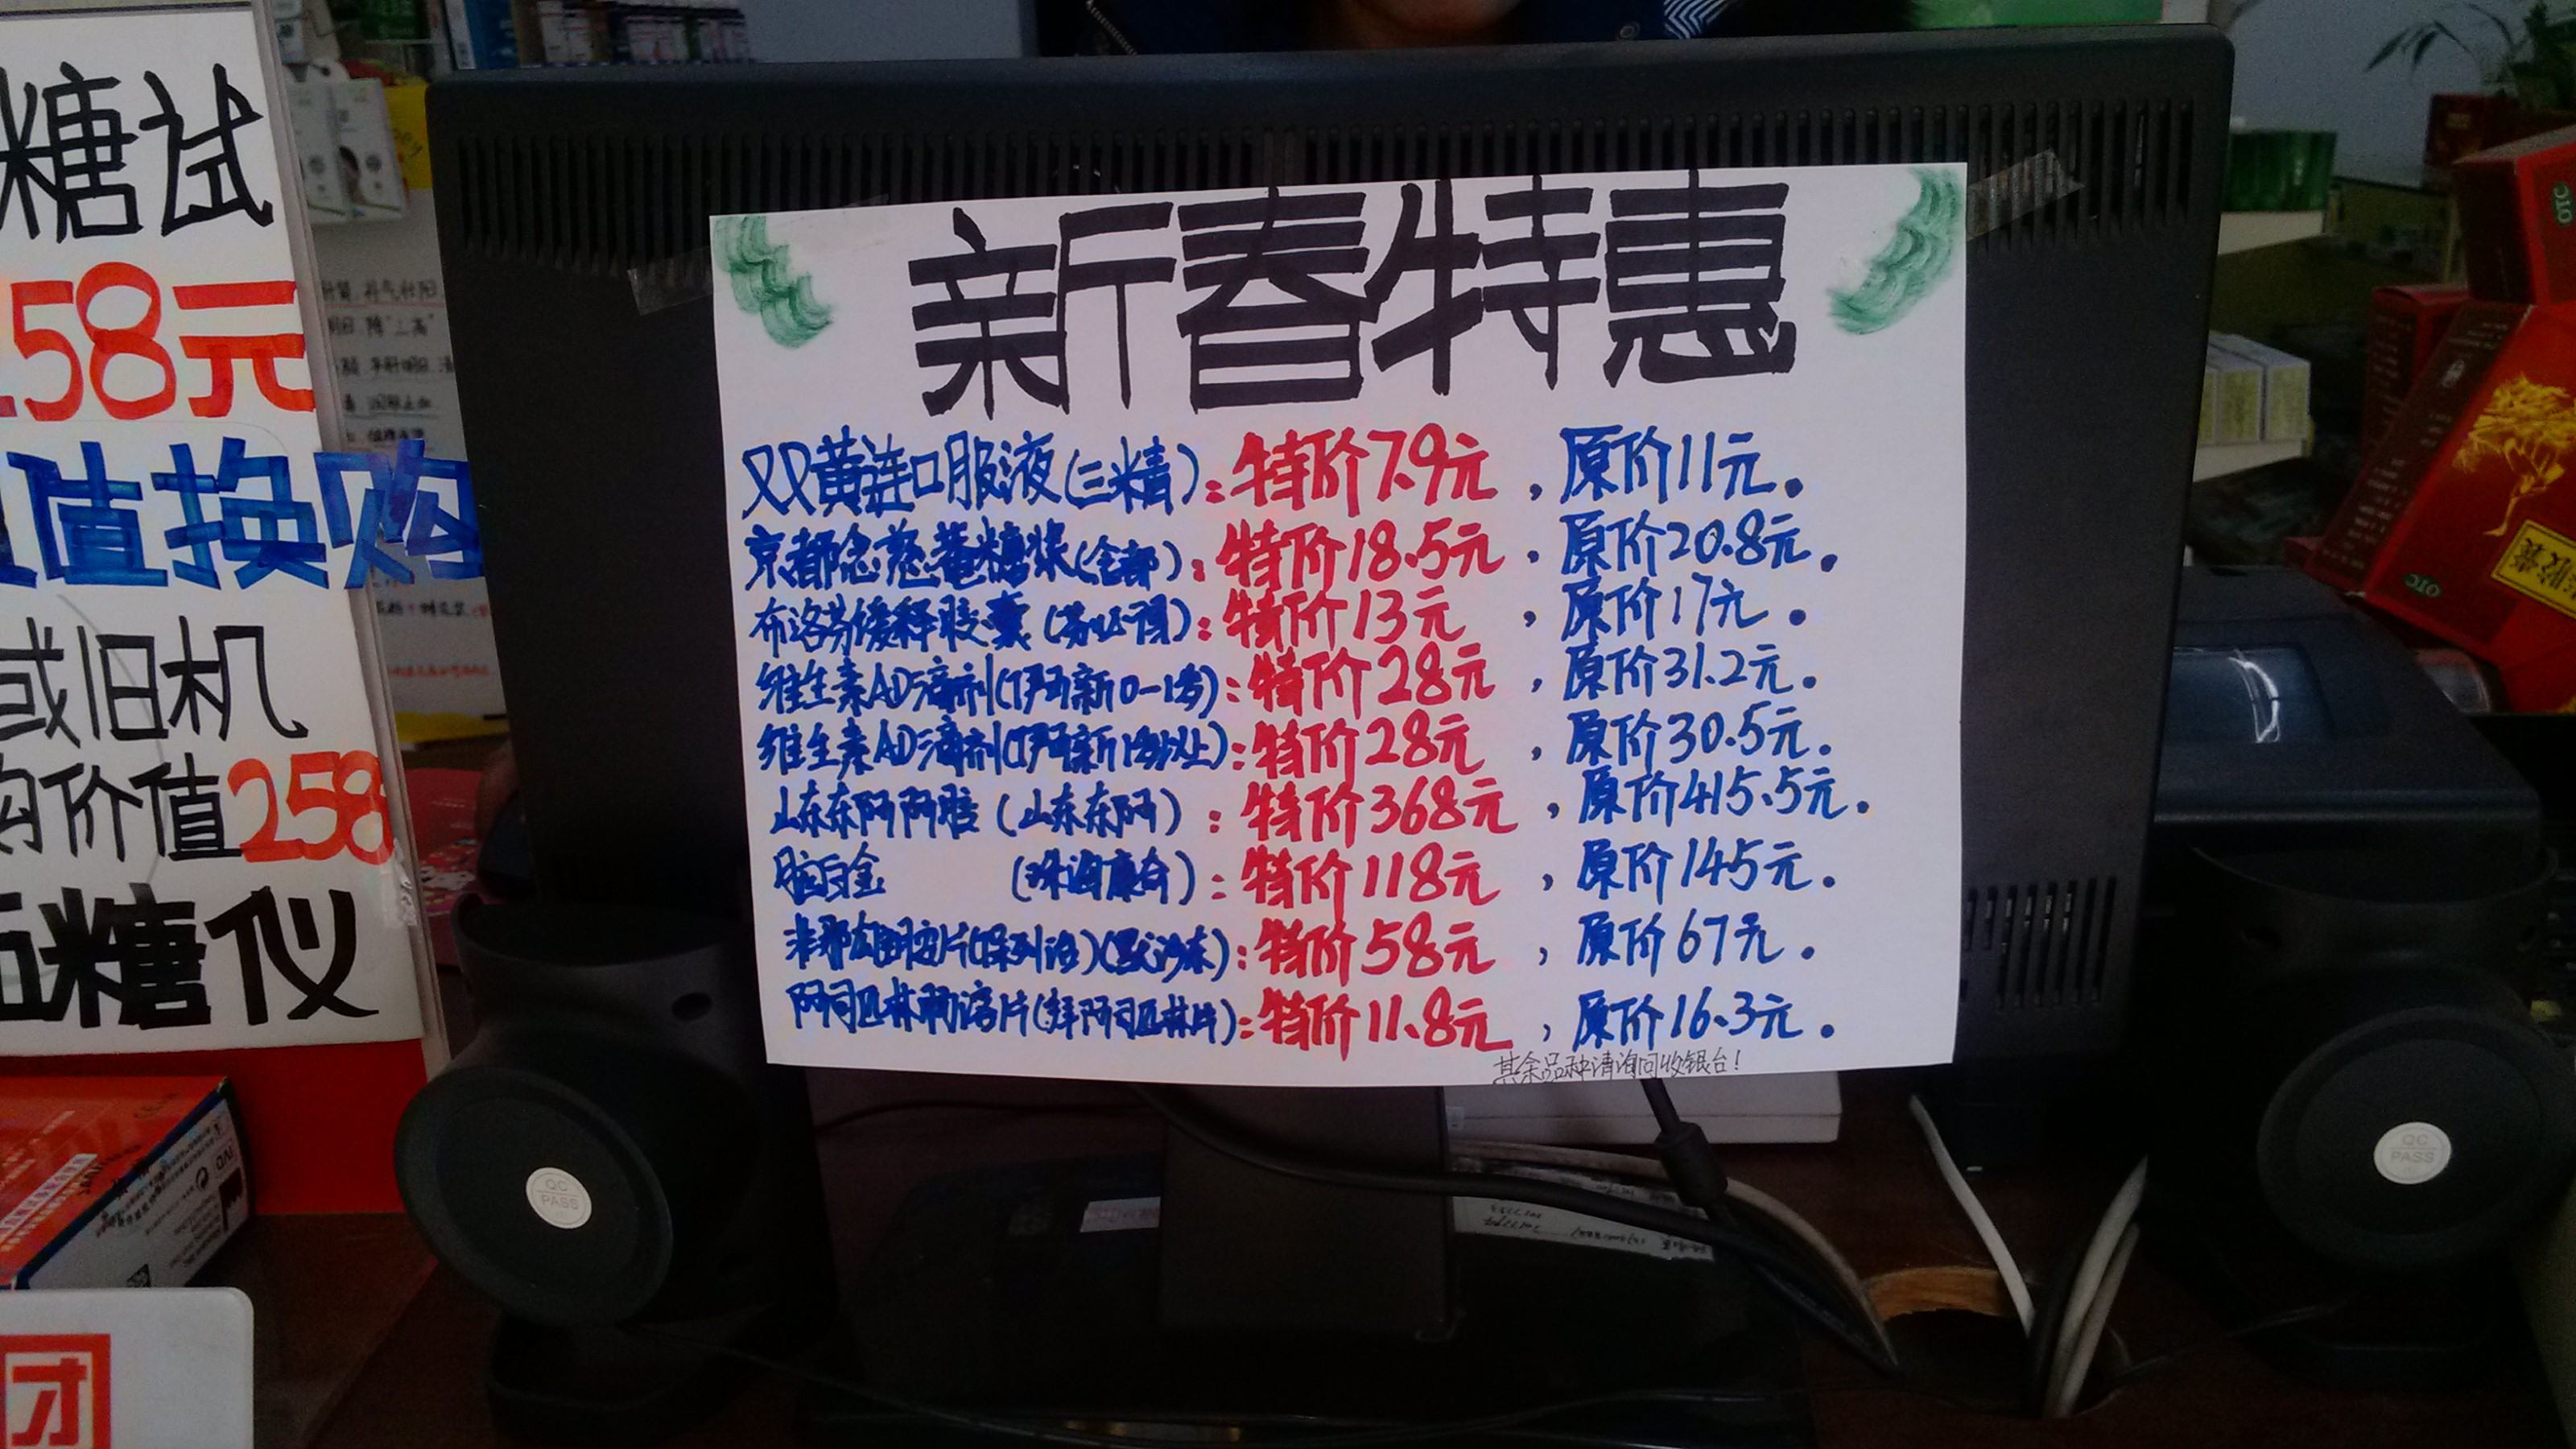 糖试
58元
值换购
或旧机
购价值258
糖仪
新春特惠
双黄连口服液(三精):特价7.9元,原价11元。
京都念慈菴糖浆(全部):特价18.5元,原价20.8元。
布洛芬缓释胶囊(芬必得):特价13元,原价17元。
维生素AD滴剂(伊可新0-1岁):特价28元,原价31.2元。
维生素AD滴剂(伊可新1岁以上):特价28元,原价30.5元。
山东东阿阿胶(山东东阿):特价368元,原价415.5元。
脑白金(珠海康奇):特价118元,原价145元。
非那雄胺片(保列治)(默沙东):特价58元,原价67元。
阿司匹林肠溶片(拜阿司匹林片):特价11.8元,原价16.3元。
其余品种请询问收银台!
胶囊
OTC
OTC
QC
PASS
QC
PASS